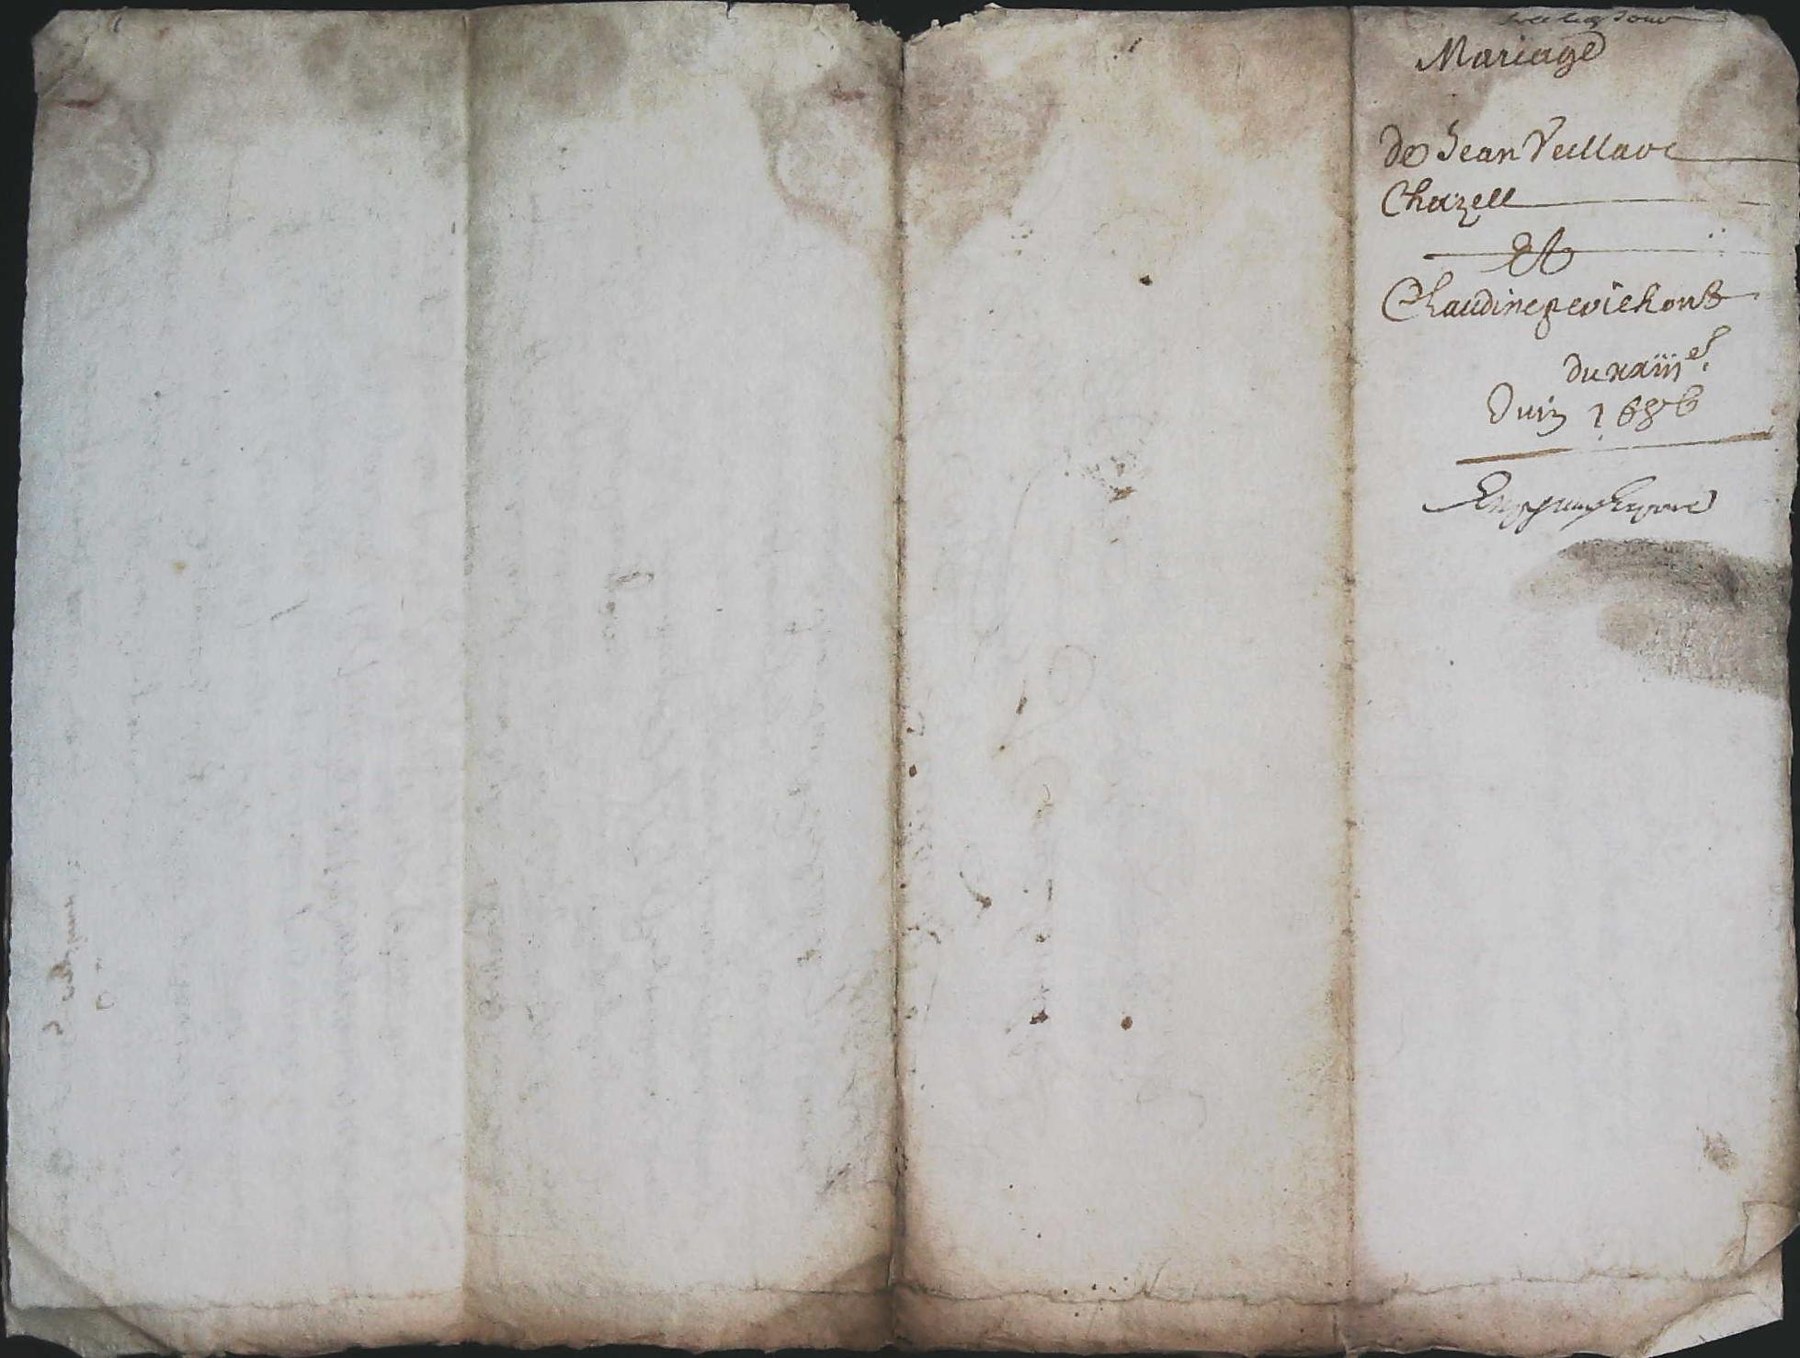 Mariage
de Jean Veillave
Chazell
Et
Chaudine pevichout
du xxiiies
Juin 1686